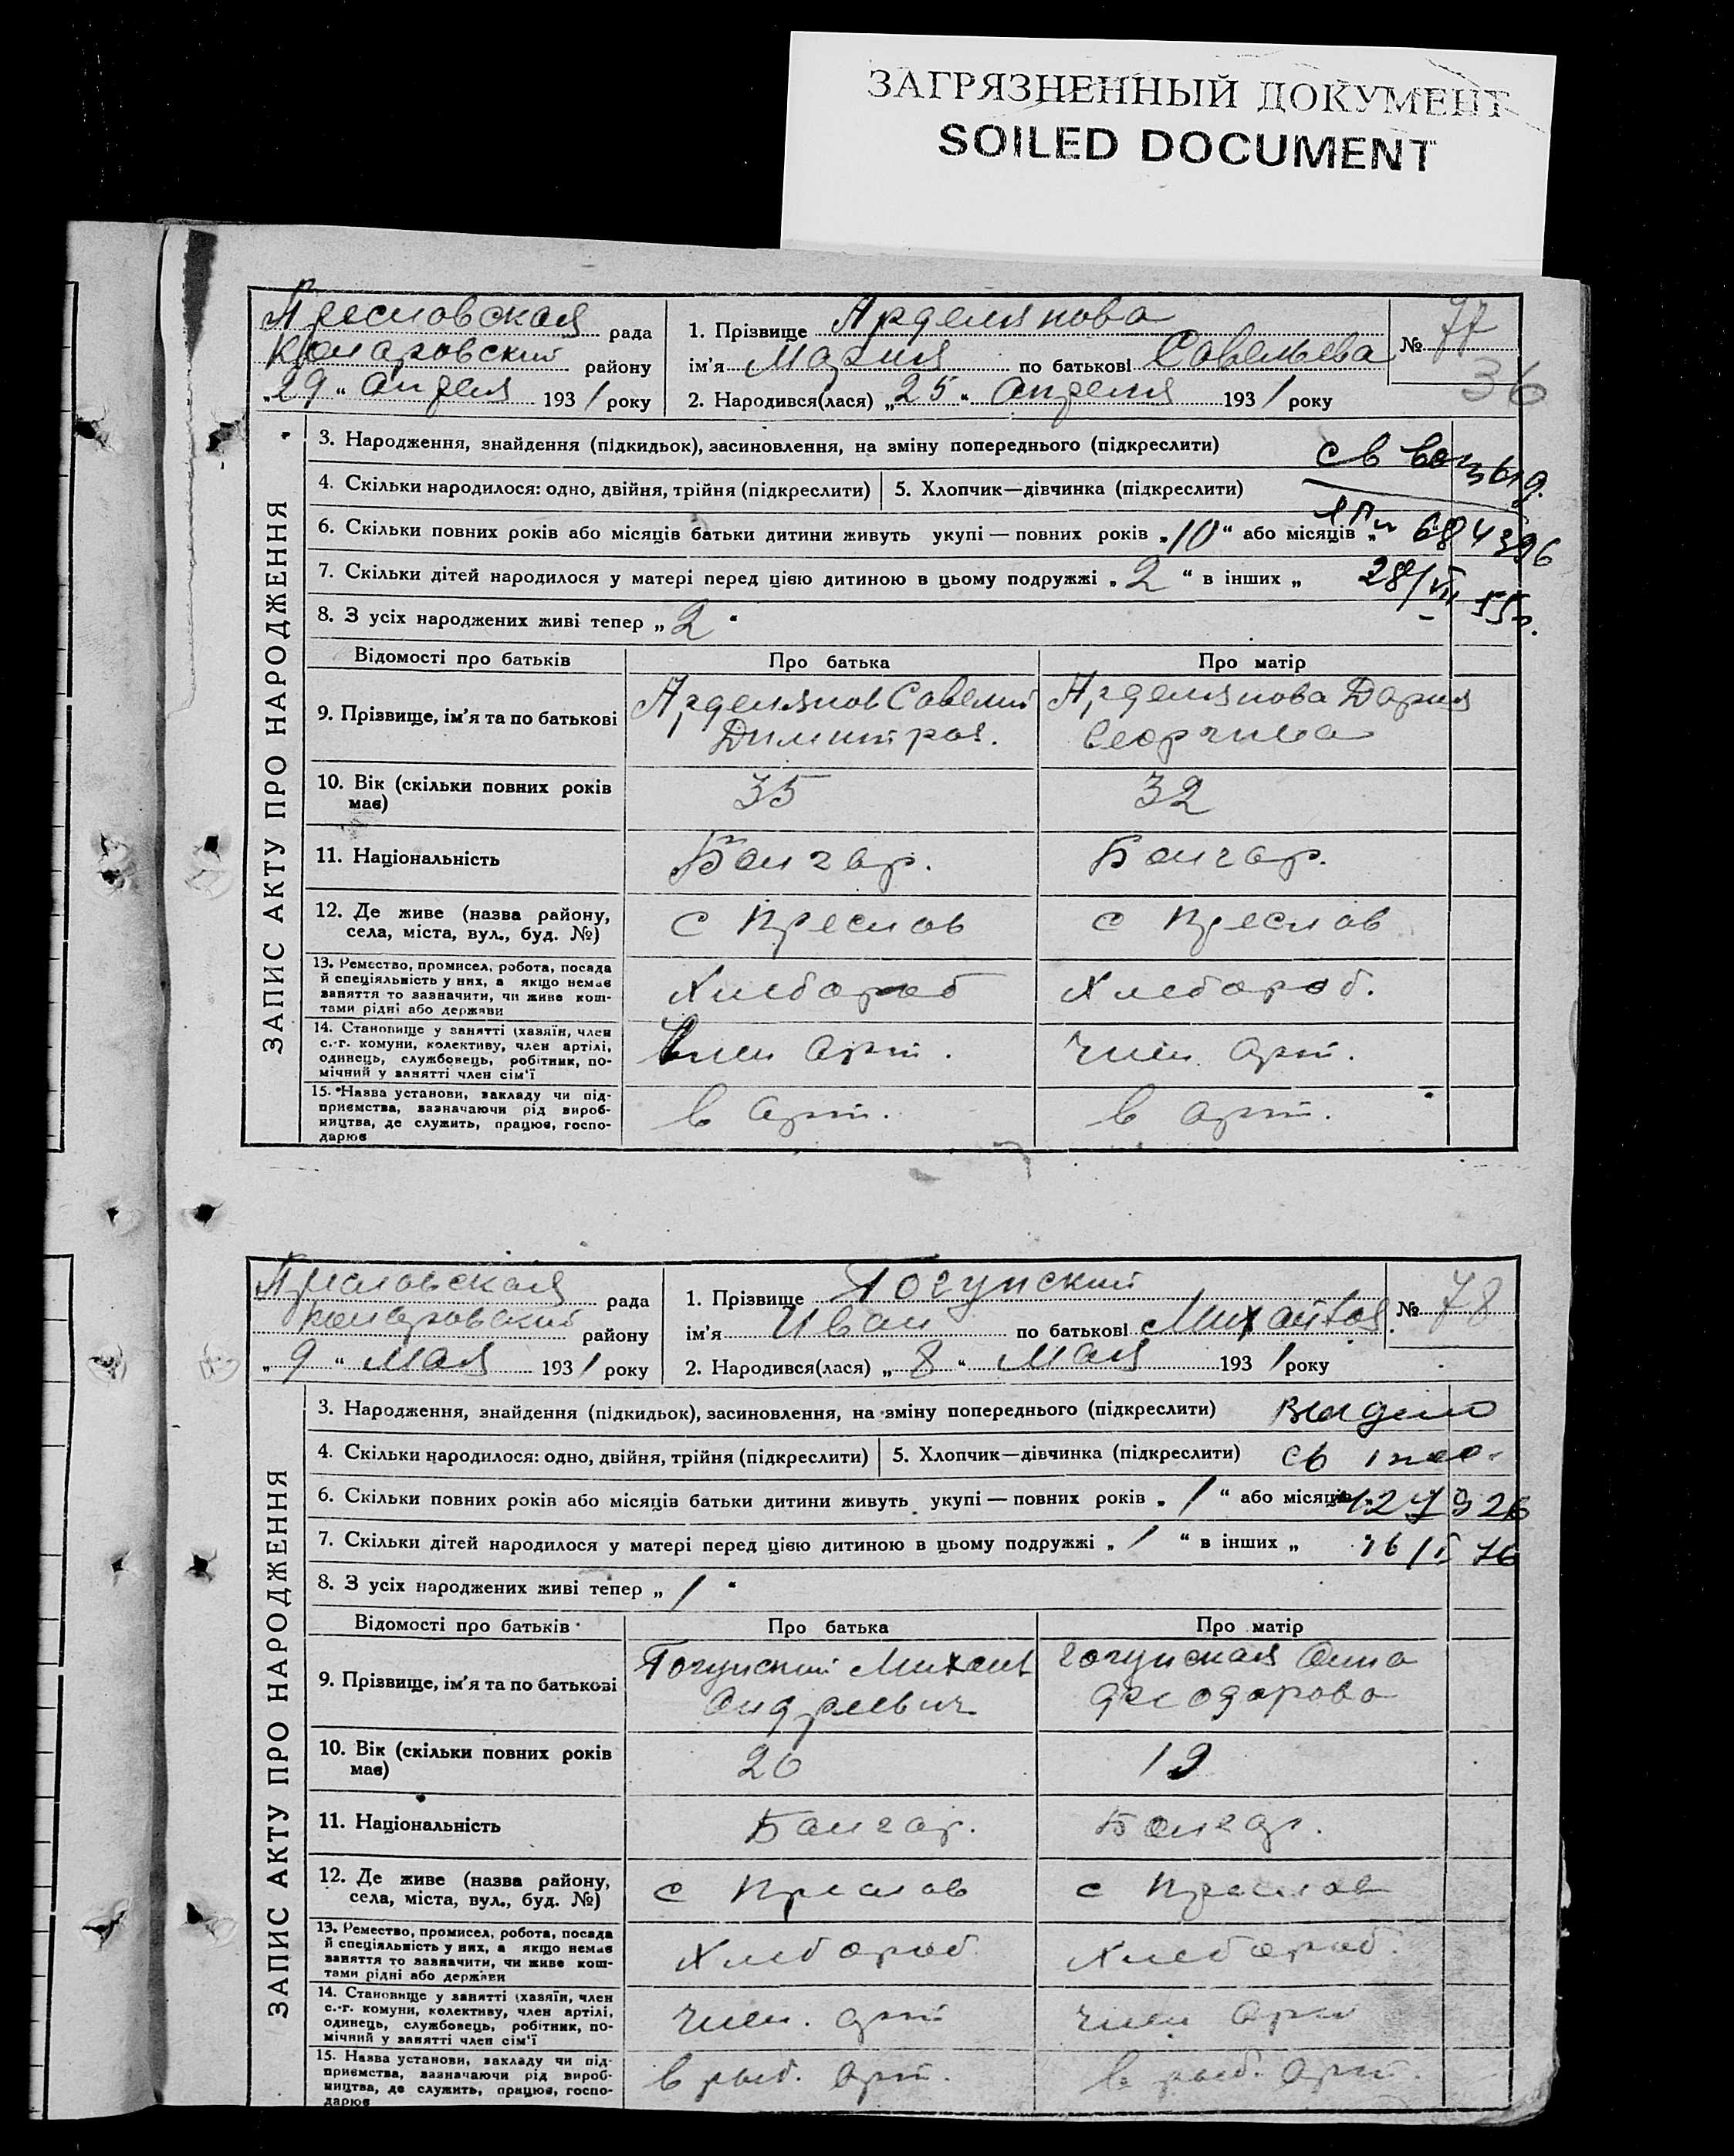 ЗАГРЯЗНЕННЫЙ ДОКУМЕНТ
SOILED DOCUMENT
Преславская рада
район
„29“ апреля 1931 року
1. Прізвище Арделянова
ім'я Мария по батькові Савельева
2. Народився(лася) „25“ апреля 1931 року
№ 77
36
ЗАПИС АКТУ ПРО НАРОДЖЕННЯ
3. Народження, знайдення (підкидьок), засиновлення, на зміну попереднього (підкреслити)
4. Скільки народилося: одно, двійня, трійня (підкреслити)
5. Хлопчик—дівчинка (підкреслити)
6. Скільки повних років або місяців батьки дитини живуть укупі — повних років „10“ або місяців „
684396
7. Скільки дітей народилося у матері перед цією дитиною в цьому подружжі „2“ в інших „
28/VII 55г.
8. З усіх народжених живі тепер „2“
Відомості про батьків
Про батька
Про матір
9. Прізвище, ім'я та по батькові
Арделянов Савелий
Димитров.
Арделянова Дария
Георгиева
10. Вік (скільки повних років
має)
35
32
11. Національність
Болгар.
Болгар.
12. Де живе (назва району,
села, міста, вул., буд. №)
с Преслав
с Преслав
13. Ремество, промисел, робота, посада
й спеціяльність у них, а якщо немає
заняття то зазначити, чи живе кош-
тами рідні або держави
Хлебороб
Хлебороб.
14. Становище у занятті (хазяїн, член
с.-г. комуни, колективу, член артілі,
одинець, службовець, робітник, по-
мічний у занятті член сім'ї
Член Арт.
член Арт.
15. Назва установи, закладу чи під-
приємства, зазначаючи рід вироб-
ництва, де служить, працює, госпо-
дарює
в Арт.
в Арт.
Преславская рада
району
„9“ Мая 1931 року
1. Прізвище Гогунский
ім'я Иван по батькові
2. Народився(лася) „8“ Мая 1931 року
№ 78
ЗАПИС АКТУ ПРО НАРОДЖЕННЯ
3. Народження, знайдення (підкидьок), засиновлення, на зміну попереднього (підкреслити)
4. Скільки народилося: одно, двійня, трійня (підкреслити)
5. Хлопчик—дівчинка (підкреслити)
6. Скільки повних років або місяців батьки дитини живуть укупі — повних років „1“ або місяців
7. Скільки дітей народилося у матері перед цією дитиною в цьому подружжі „1“ в інших „
8. З усіх народжених живі тепер „1“
Відомості про батьків
Про батька
Про матір
9. Прізвище, ім'я та по батькові
Гогунский Михаил
Андреевич
Гогунская Анна
Феодорова
10. Вік (скільки повних років
має)
20
19
11. Національність
Болгар.
Болгар.
12. Де живе (назва району,
села, міста, вул., буд. №)
с Преслав
с Преслав
13. Ремество, промисел, робота, посада
й спеціяльність у них, а якщо немає
заняття то зазначити, чи живе кош-
тами рідні або держави
Хлебороб
Хлебороб.
14. Становище у занятті (хазяїн, член
с.-г. комуни, колективу, член артілі,
одинець, службовець, робітник, по-
мічний у занятті член сім'ї
член. Арт
член Арт
15. Назва установи, закладу чи під-
приємства, зазначаючи рід вироб-
ництва, де служить, працює, госпо-
дарює
в рыб. Арт.
в рыб. Арт.